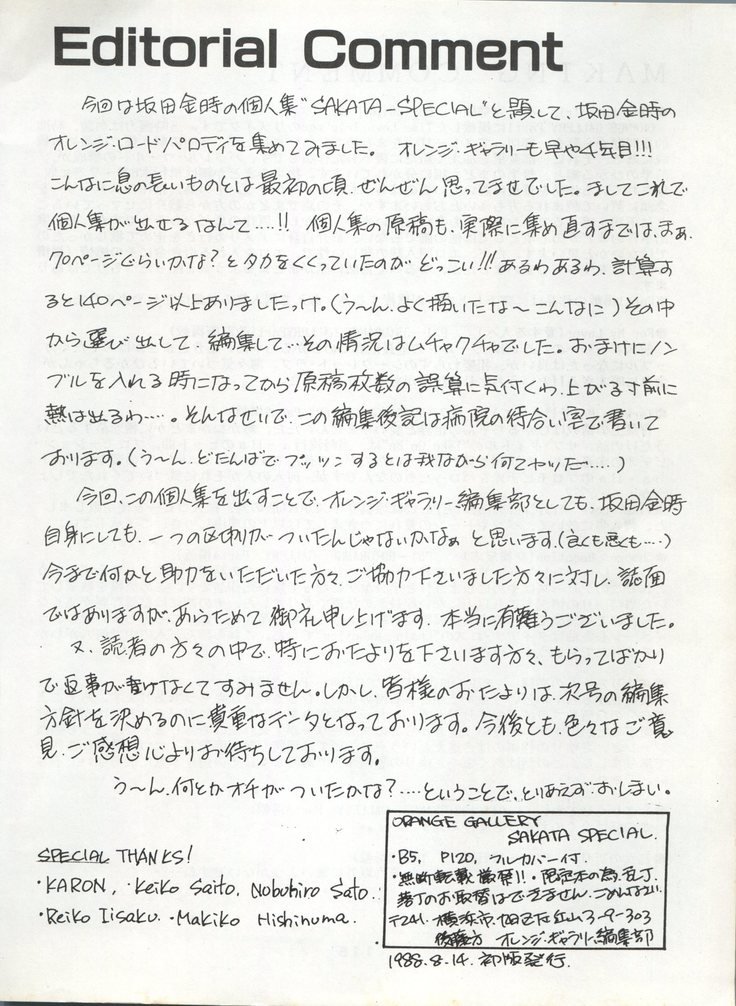 Editorial Comment
今回は坂田金時の個人集"SAKATA-SPECIAL"と題して、坂田金時の
オレンジ・ロードパロディを集めてみました。 オレンジ・ギャラリーも早や4年目!!!
こんなに息の長いものとは最初の頃、ぜんぜん思ってませでした。ましてこれで
個人集が出せるなんて‥‥!! 個人集の原稿も、実際に集め直すまでは、まぁ、
70ページぐらいかな?とタカをくくっていたのが どっこい!!!あるわあるわ、計算す
ると140ページ以上ありましたっけ。(う〜ん、よく描いたな〜こんなに)その中
から選び出して、編集して‥その情況はムチャクチャでした。おまけにノン
ブルを入れる時になってから原稿枚数の誤算に気付くわ、上がる寸前に
熱は出るわ‥‥。そんなせいで、この編集後記は病院の待合い室で書いて
おります。(う〜ん、どたんばでプッツンするとは我ながら何てヤツだ‥‥)
今回、この個人集を出すことで、オレンジ・ギャラリー編集部としても、坂田金時
自身にしても、一つの区切りがついたんじゃないかなぁ と思います。(良くも悪くも‥‥)
今まで何かと助力をいただいた方々、ご協力下さいました方々に対し、誌面
ではありますが、あらためて御礼申し上げます。本当に有難うございました。
又、読者の方々の中で、特におたよりを下さいます方々、もらってばかり
で返事が書けなくてすみません。しかし、皆様のおたよりは、次号の編集
方針を決めるのに貴重なデータとなっております。今後とも、色々なご意
見、ご感想心よりお待ちしております。
う〜ん、何とかオチがついたかな?‥‥ということで、とりあえず、おしまい。
SPECIAL THANKS!
・KARON、・Keiko Saito、Nobuhiro Sato.
・Reiko Iisaku.・Makiko Hishinuma.
ORANGE GALLERY
SAKATA SPECIAL.
・B5, P120, フルカバー付.
・無断転載厳禁!!・限定本の為、乱丁
落丁のお取替はできません。ごめんなさい.
〒241. 横浜市旭区 3-9-303
後藤方 オレンジ・ギャラリー編集部
1988.8.14. 初版発行.